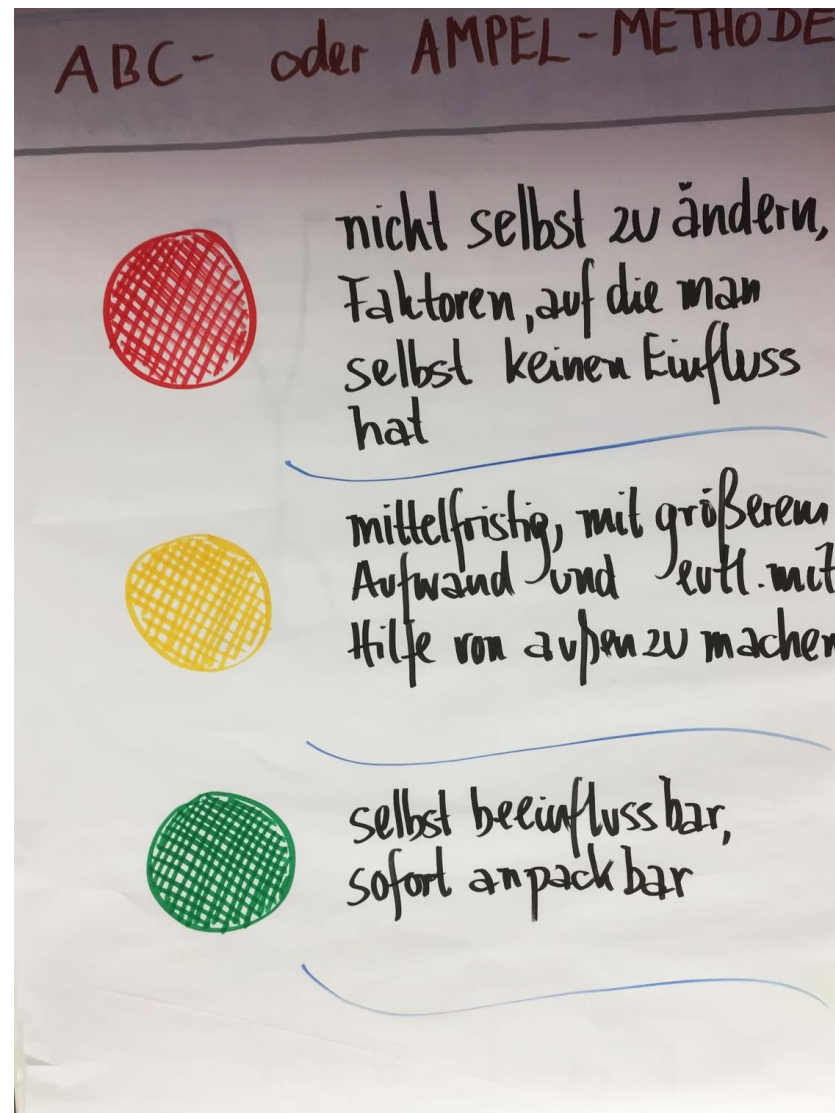 ABC- oder AMPEL-METHODE
nicht selbst zu ändern,
Faktoren, auf die man
selbst keinen Einfluss
hat
mittelfristig, mit größerem
Aufwand und evtl. mit
Hilfe von außen zu machen
selbst beeinflussbar,
sofort anpackbar